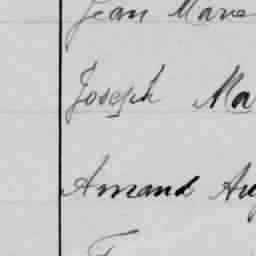 Jean Marie
Joseph Ma
Armand Au